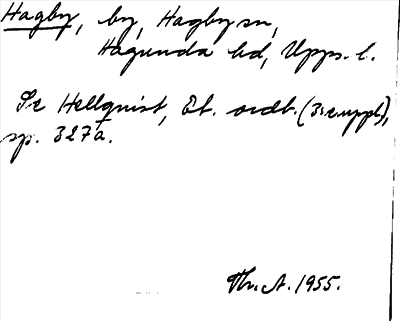 Hagby, by, Hagby sn,
Hagunda hd, Upps. l.
Se Hellquist, Et. ordb. (3:e uppl),
sp. 327a.
Th. A. 1955.